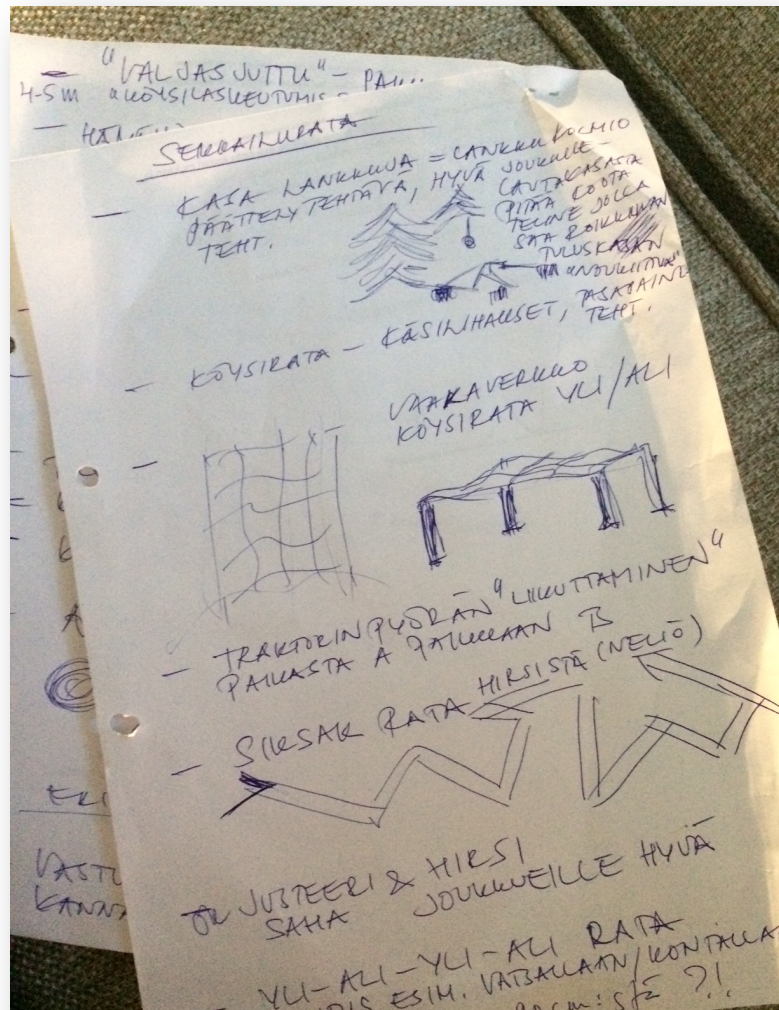 "VALJASJUTTU" -
4-5m "KÖYSILASKEUTUMIS -
SEIKKAILURATA
- KASA LANKKUJA = LANKKUKOLMIO
PÄÄTTELYTEHTÄVÄ, HYVÄ JOUKKUE-
TEHT.
LAUTAKASASTA
PITÄÄ KOOTA
TELINE JOLLA
SAA ROIKKUVAN
- KÖYSIRATA - KÄSILIHAKSET, TASAPAINO
TEHT.
- VAAKAVERKKO
KÖYSIRATA YLI/ALI
- TRAKTORINPYÖRÄN "LIIKUTTAMINEN"
PAIKASTA A PAIKKAAN B
- SIKSAK RATA HIRSISTÄ (NELIÖ)
ERI
VASTU
KANNA
JUSTEERI & HIRSI
SAHA JOUKKUEILLE HYVÄ
- YLI-ALI-YLI-ALI RATA
ESIM. VATSALLAAN/KONTALLA
?!